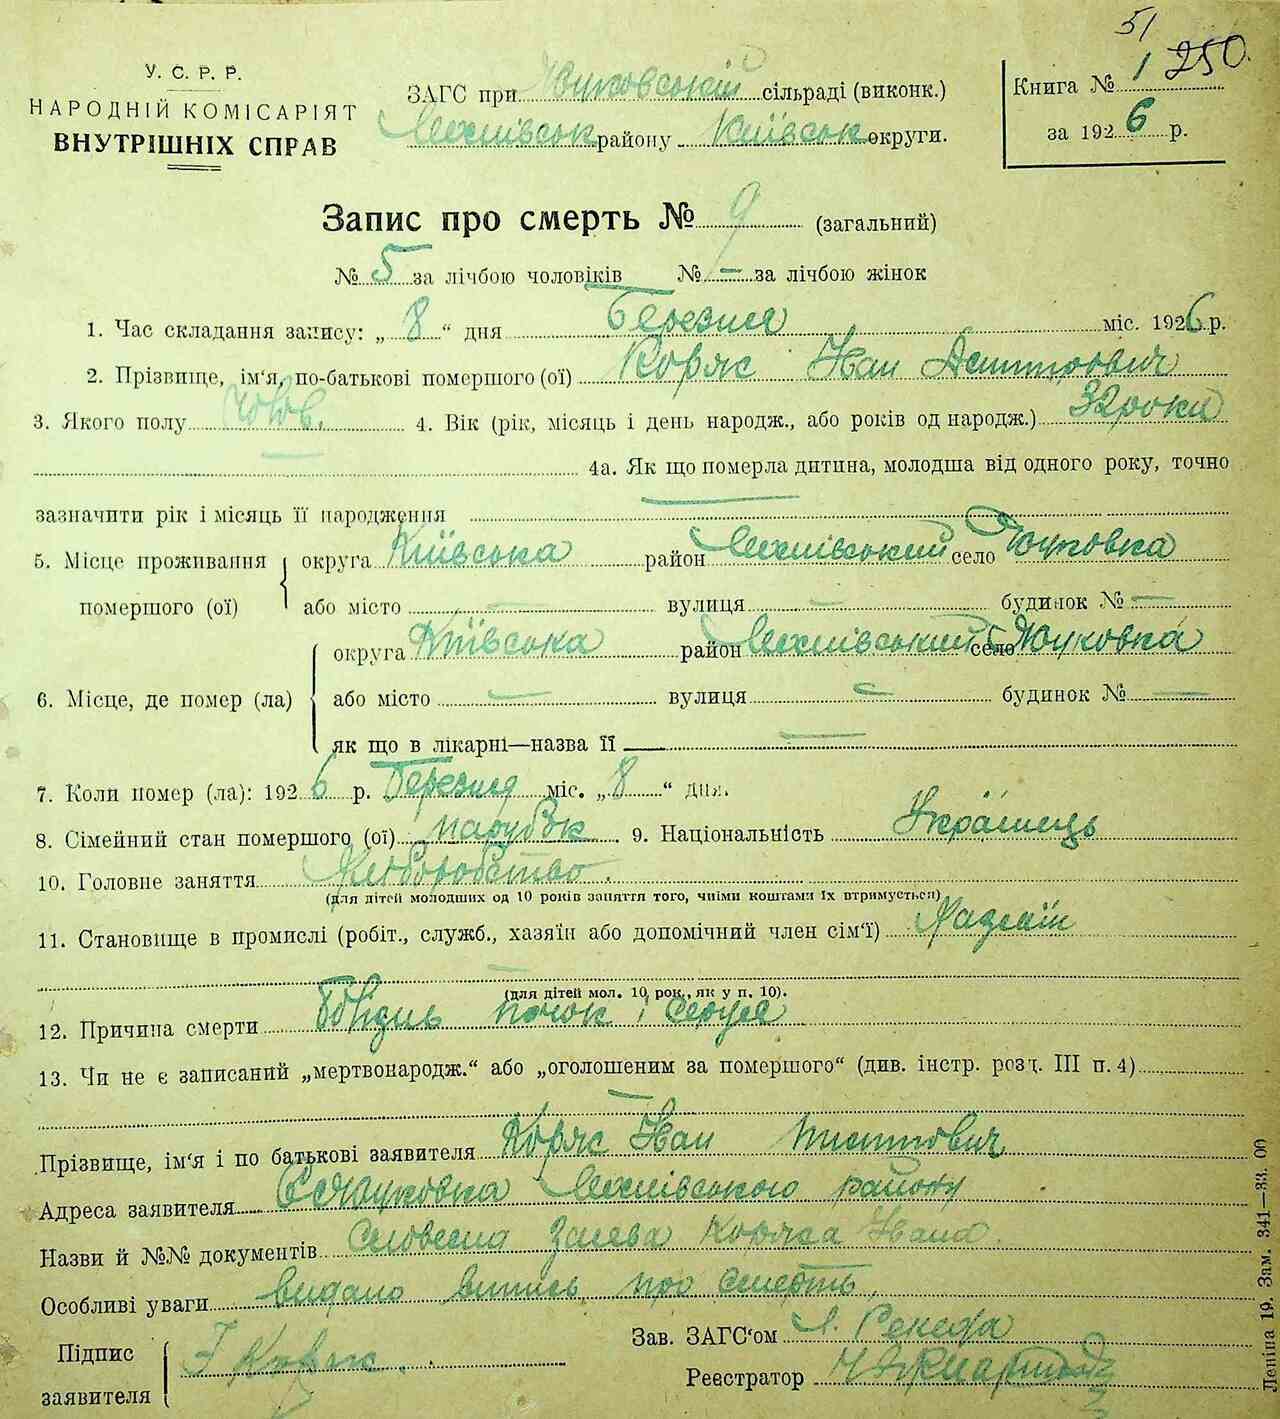 51
1 250.
У. С. Р. Р.
НАРОДНІЙ КОМІСАРІЯТ
ВНУТРІШНІХ СПРАВ
ЗАГС при Жуковській сільраді (виконк.)
району Київськ округи.
Книга №
за 1926 р.
Запис про смерть № 9 (загальний)
№ 5 за лічбою чоловіків № — за лічбою жінок
1. Час складання запису: „ 8 “ дня Березня міс. 1926 р.
2. Прізвище, ім‘я, по-батькові помершого (ої) Коряк Іван Дмитрович
3. Якого полу чолов. 4. Вік (рік, місяць і день народж., або років од народж.) 32 роки
4а. Як що померла дитина, молодша від одного року, точно
зазначити рік і місяць її народження —
5. Місце проживання помершого (ої) округа Київська район село Жуковка
або місто — вулиця — будинок № —
6. Місце, де помер (ла) округа Київська район село Жуковка
або місто — вулиця — будинок № —
як що в лікарні—назва її —
7. Коли помер (ла): 1926 р. Березня міс. „ 8 “ дня.
8. Сімейний стан помершого (ої) парубок 9. Національність Українець
10. Головне заняття Хліборобство.
(для дітей молодших од 10 років заняття того, чиїми коштами їх втримується)
11. Становище в промислі (робіт., служб., хазяїн або допомічний член сім‘ї) Хазяїн
(для дітей мол. 10 рок., як у п. 10).
12. Причина смерти почок і серця
13. Чи не є записаний „мертвонародж.“ або „оголошеним за помершого“ (див. інстр. розд. III п. 4)
—
Прізвище, ім‘я і по батькові заявителя Коряк Іван
Адреса заявителя С Жуковка району
Назви й №№ документів Словесна заява Коряка Івана.
Особливі уваги видано витись про смерть
Підпис заявителя І Коряк.
Зав. ЗАГС‘ом
Реєстратор
Леніна 19. Зам. 341—33. 00